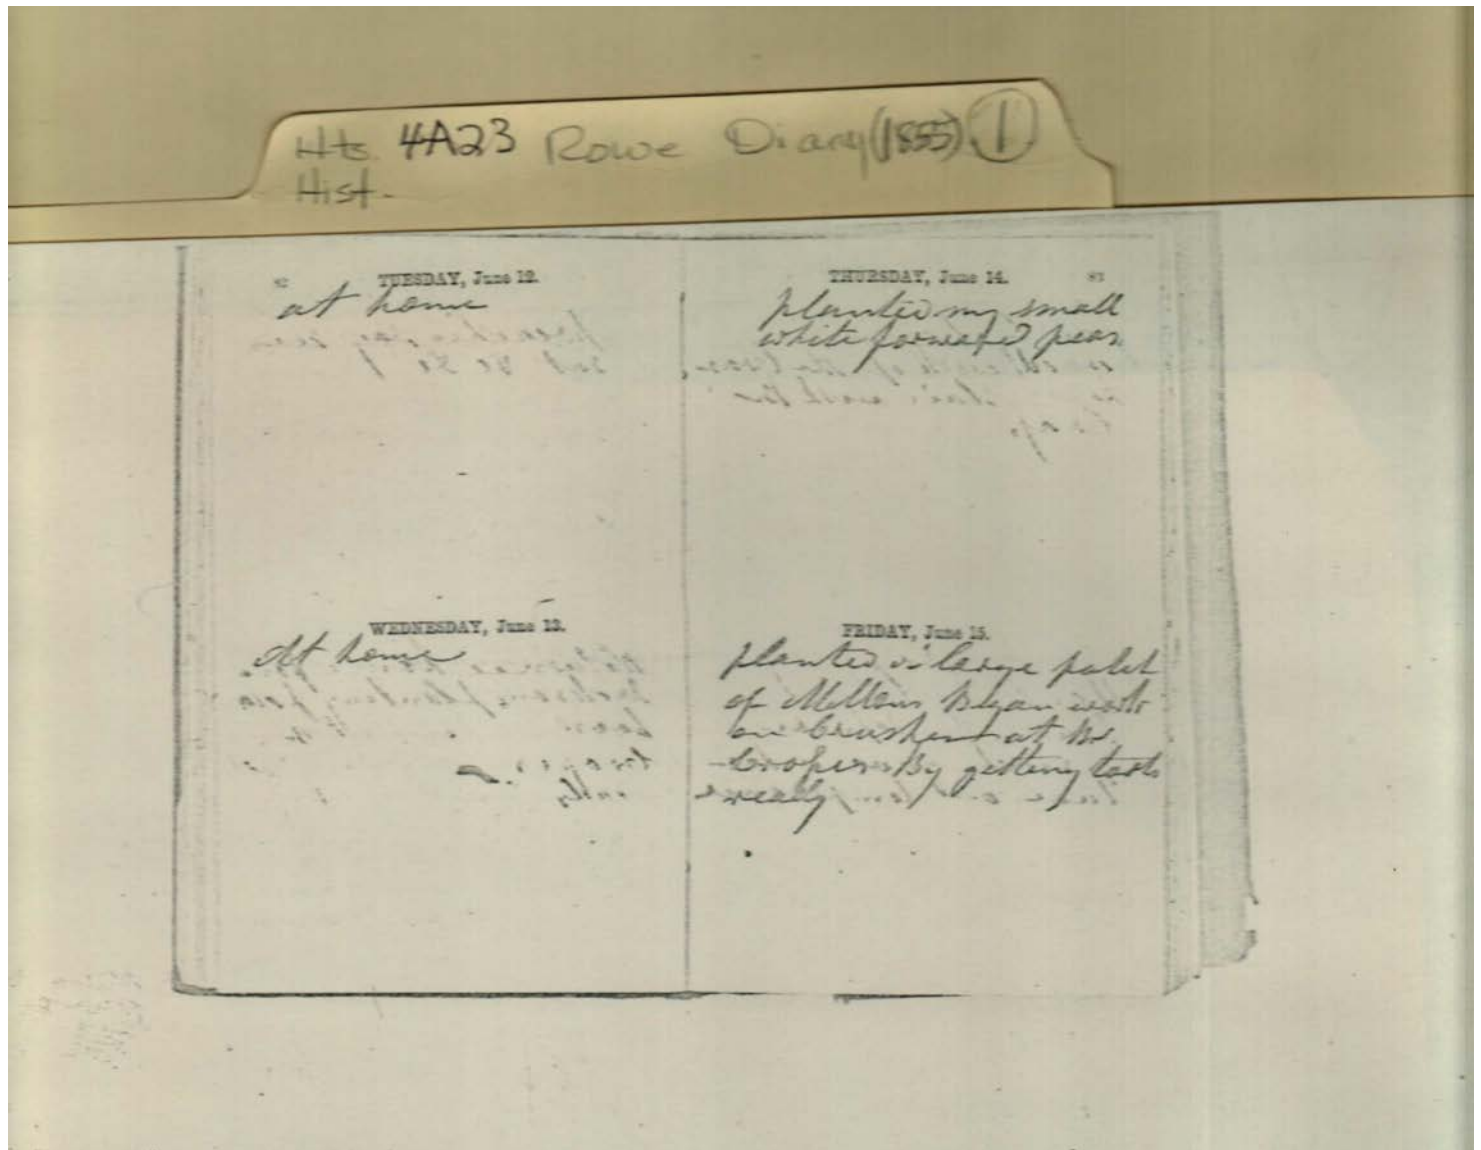 Hts. 4A23 Rowe Diary (1855) 1
Hist.
82
TUESDAY, June 12.
at home
WEDNESDAY, June 13.
At home
THURSDAY, June 14. 83
planted my small
white forward peas
FRIDAY, June 15.
planted a large patch
of Mellons Began work
on Crusher at Mr.
Cropers By getting tools
ready